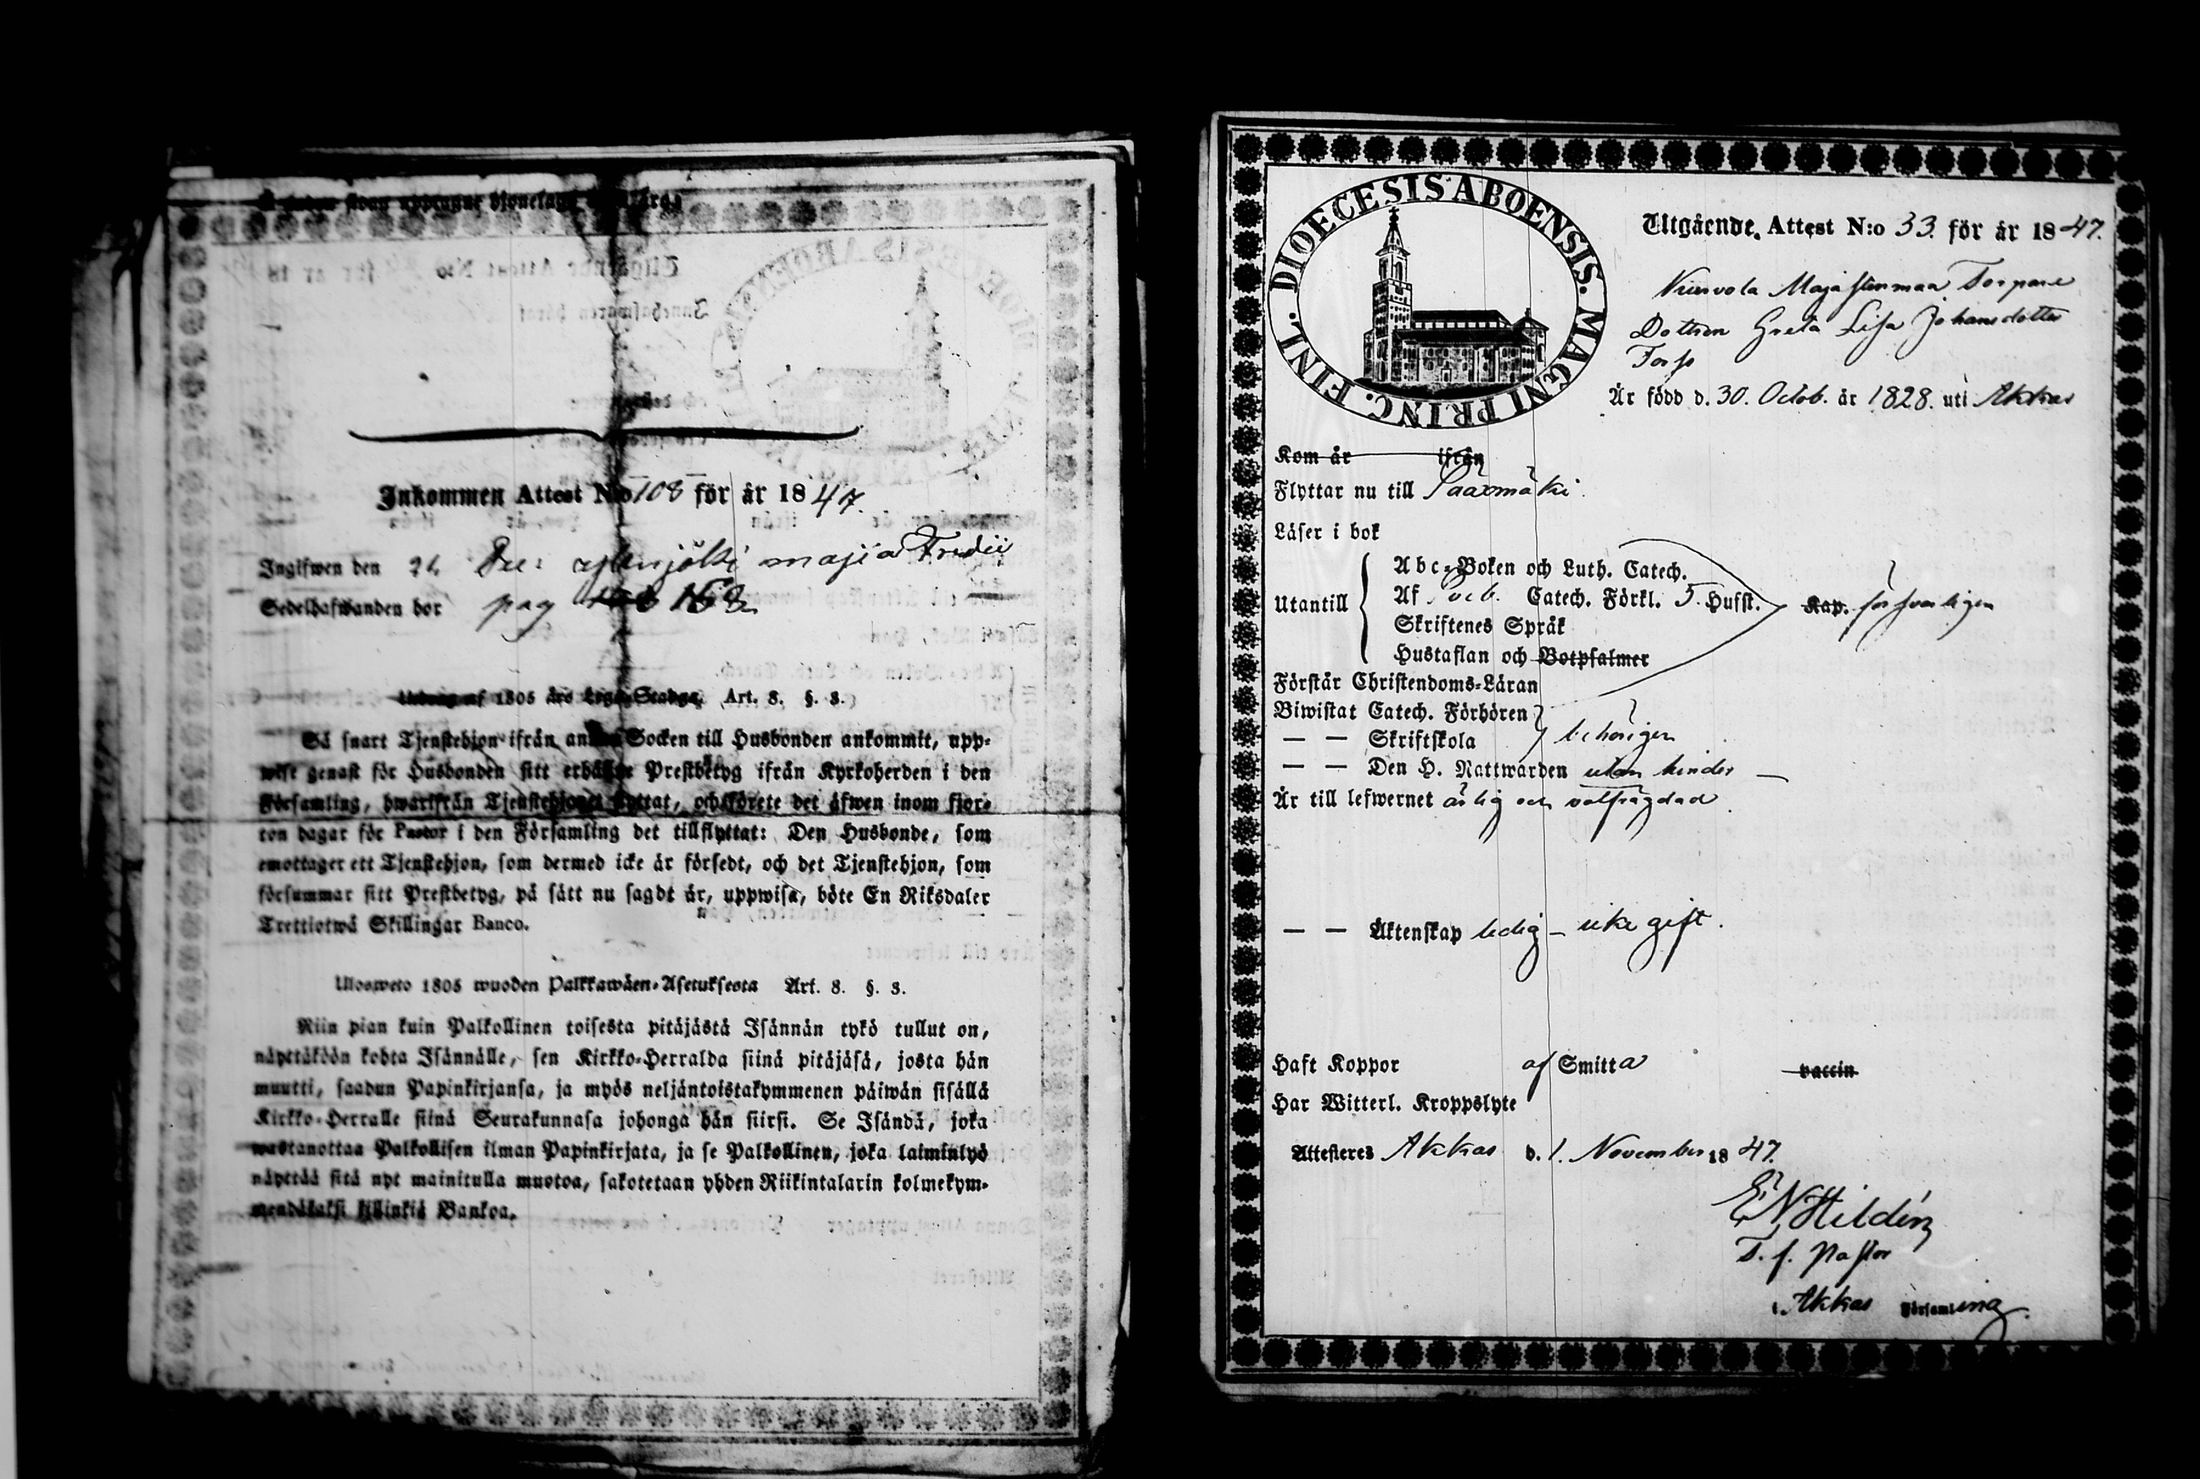 Inkommen Attest N:o 108 för år 1847.
Ingifwen den 26 Dec:
Sedelhafwanden bor pag 158
Utdrag af 1805 års Lego-Stadga, Art. 8. §. 3.
Så snart Tjenstehjon ifrån annan Socken till Husbonden ankommit, upp-
wise genast för Husbonden sitt erhållne Prestbetyg ifrån Kyrkoherden i den
Församling, hwarifrån Tjenstehjonet flyttat, och förete det äfwen inom fjor-
ton dagar för Pastor i den Församling det tillflyttat: Den Husbonde, som
emottager ett Tjenstehjon, som dermed icke är försedt, och det Tjenstehjon, som
försummar sitt Prestbetyg, på sätt nu sagdt är, uppwisa, böte En Riksdaler
Trettiotwå Skillingar Banco.
Ulosweto 1805 wuoden Palkkawäen-Asetuksesta Art. 8. §. 3.
Niin pian kuin Palkollinen toisesta pitäjästä Isännän tykö tullut on,
näyttäköön kohta Isännälle, sen Kirkko-Herralda siinä pitäjäsä, josta hän
muutti, saadun Papinkirjansa, ja myös neljäntoistakymmenen päiwän sisällä
Kirkko-Herralle siinä Seurakunnasa johonga hän siirsi. Se Isändä, joka
wastanottaa Palkollisen ilman Papinkirjata, ja se Palkollinen, joka laiminlyö
näyttää sitä nyt mainitulla muotoa, sakotetaan yhden Riikintalarin kolmekym-
mendäkaksi killinkiä Bankoa.
DIOECESIS ABOENSIS. MAGNI PRINC. FINL.
Utgående Attest N:o 33. för år 1847.
Torpare
Dottren Greta Lisa Johansdotter
Är född d. 30. Octob. år 1828. uti Akkas
Kom år ifrån
Flyttar nu till Sääxmäki.
Läser i bok
Utantill
Abc-Boken och Luth. Catech.
Af Catech. Förkl. 5. Hufst. Kap. försvarligen
Skriftenes Språk
Hustaflan och Botpsalmer
Förstår Christendoms-Läran
Biwistat Catech. Förhören
— — Skriftskola behörigen
— — Den H. Nattwarden utan hinder —
Är till lefwernet ärlig och välfrägdad
— — Äktenskap ledig – icke gift.
Haft Koppor af Smitta vaccin
Har Witterl. Kroppslyte
Attesteres Akkas d. 1. November 1847.
E N Hildén
T. f. Pastor
i Akkas Församling.